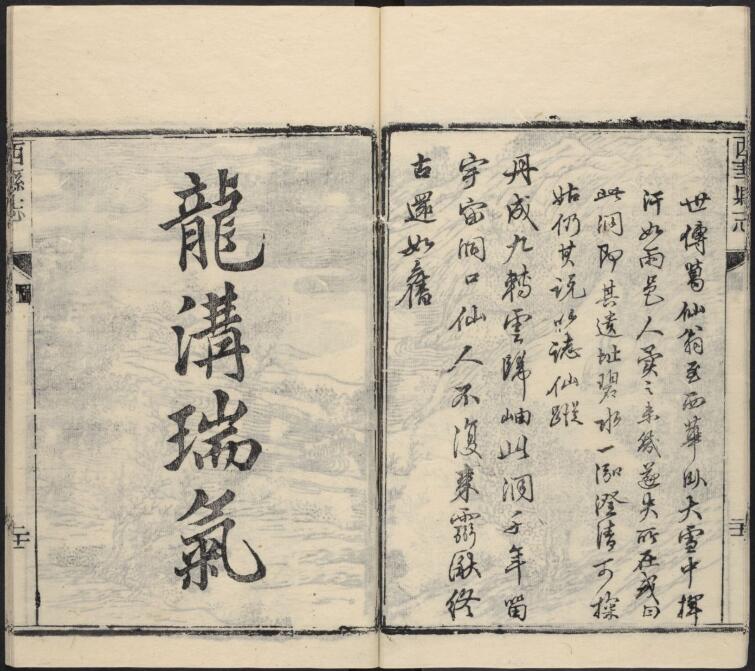 西華縣志
世傳葛仙翁至西華臥大雪中揮
汗如雨邑人異之未幾遂失所在或曰
此洞即其遺址碧水一泓澄清可
姑仍其說以誌仙蹤
丹成九轉雲歸岫此洞千年留
宇宙洞口仙人不復來靈湫終
古還如舊
龍溝瑞氣